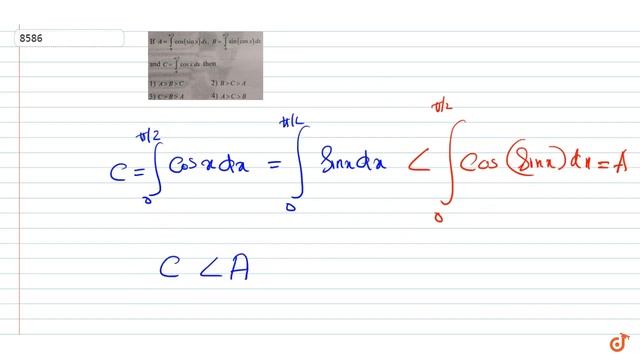 8586
If A = ∫₀^(π/2) cos(sin x) dx, B = ∫₀^(π/2) sin(cos x) dx
and C = ∫₀^(π/2) cos x dx then
1) A > B > C 2) B > C > A
3) C > B > A 4) A > C > B
C = ∫₀^(π/2) Cos x dx = ∫₀^(π/2) Sin x dx < ∫₀^(π/2) Cos (Sin x) dx = A
C < A